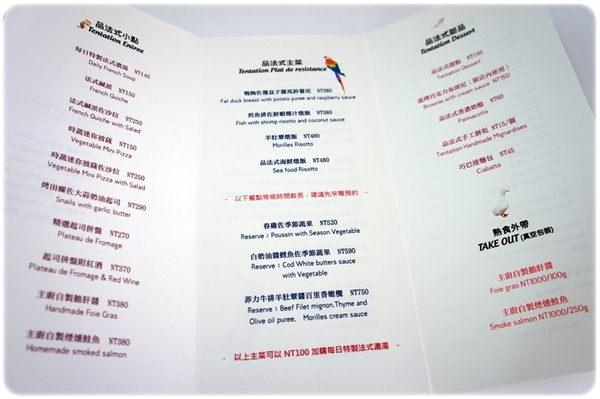 品法式小點
Tentation Entree
每日特製法式濃湯 NT140
Daily French Soup
法式鹹派 NT150
French Quiche
法式鹹派佐沙拉 NT250
French Quiche with Salad
時蔬迷你披薩 NT150
Vegetable Mini Pizza
時蔬迷你披薩佐沙拉 NT250
Vegetable Mini Pizza with Salad
烤田螺佐大蒜奶油起司 NT290
Snails with garlic butter
精選起司拼盤 NT270
Plateau de Fromage
起司拼盤附紅酒 NT370
Plateau de Fromage & Red Wine
主廚自製鵝肝醬 NT380
Handmade Foie Gras
主廚自製煙燻鮭魚 NT380
Homemade smoked salmon
品法式主菜
Tentation Plat de resistance
鴨胸佐覆盆子醬馬鈴薯泥 NT380
Fat duck breast with potato puree and raspberry sauce
煎魚排佐鮮蝦椰汁燉飯 NT380
Fish with shrimp risotto and coconut sauce
羊肚蕈燉飯 NT480
Morilles Risotto
品法式海鮮燉飯 NT480
Sea food Risotto
- 以下餐點等候時間較長，建議先來電預約 -
春雞佐季節蔬果 NT520
Reserve：Poussin with Season Vegetable
白奶油醬鱈魚佐季節蔬果 NT590
Reserve：Cod White butters sauce
with Vegetable
菲力牛排羊肚蕈醬百里香橄欖 NT750
Reserve：Beef Filet mignon,Thyme and
Olive oil puree， Morilles cream sauce
- 以上主菜可以 NT100 加購每日特製法式濃湯 -
品法式甜品
Tentation Dessert
品法式甜點 NT150
Tentation Dessert
溫烤巧克力布朗尼（限店內使用）
Brownie with cream sauce NT150
品法式香濃奶酪 NT60
Pannacotta
品法式手工餅乾 NT15/個
Tentation Handmade Mignardises
巧巴達麵包 NT45
Ciabatta
熟食外帶
TAKE OUT (真空包裝)
主廚自製鵝肝醬
Foie gras NT1000/100g
主廚自製煙燻鮭魚
Smoke salmon NT1000/250g